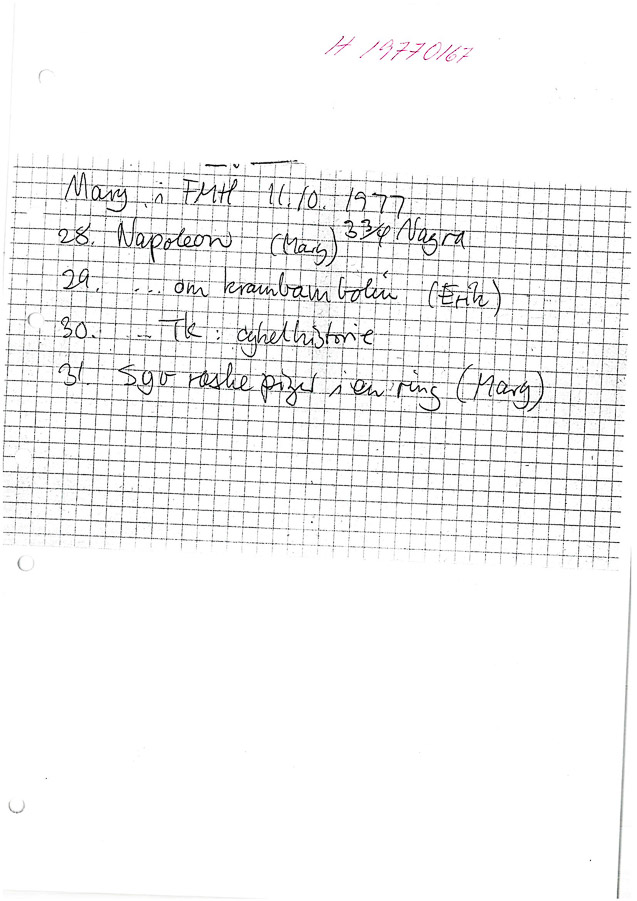 H 19770167
Mary i FMH 11.10. 1977
28. Napoleon (Mary) 3 3/4 Nagra
29. ... om krambambolin (Erik)
30. ... TK: cykelhistorie
31. Syv raske piger i en ring (Mary)